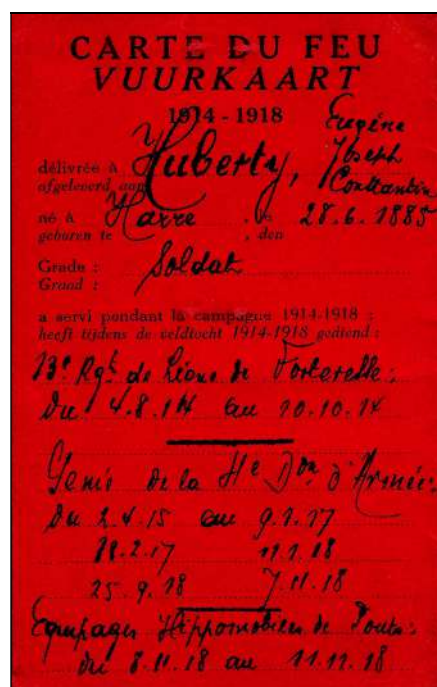 CARTE DU FEU
VUURKAART
1914 - 1918
Eugène
délivrée à Huberty, Joseph
afgeleverd aan Constantin
né à Harre, le 28.6.1885
geboren te , den
Grade : Soldat
Graad :
a servi pendant la campagne 1914-1918 :
heeft tijdens de veldtocht 1914-1918 gediend :
13e Rgt de Ligne de Forteresse :
du 4.8.14 au 10.10.14
Génie de la 4e Don d'Armée :
du 2.4.15 au
25.9.18 7.11.18
Equipages Hippomobiles de Ponts :
du 8.11.18 au 11.11.18